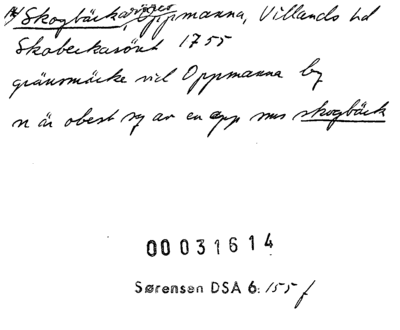 */ Skogbäckaringes, Oppmanna, Villands hd
Skobeckasönt 1755
gränsmärke vid Oppmanna by
n är obest sg av en app mus skogbäck
00031614
Sørensen DSA 6: 155 f